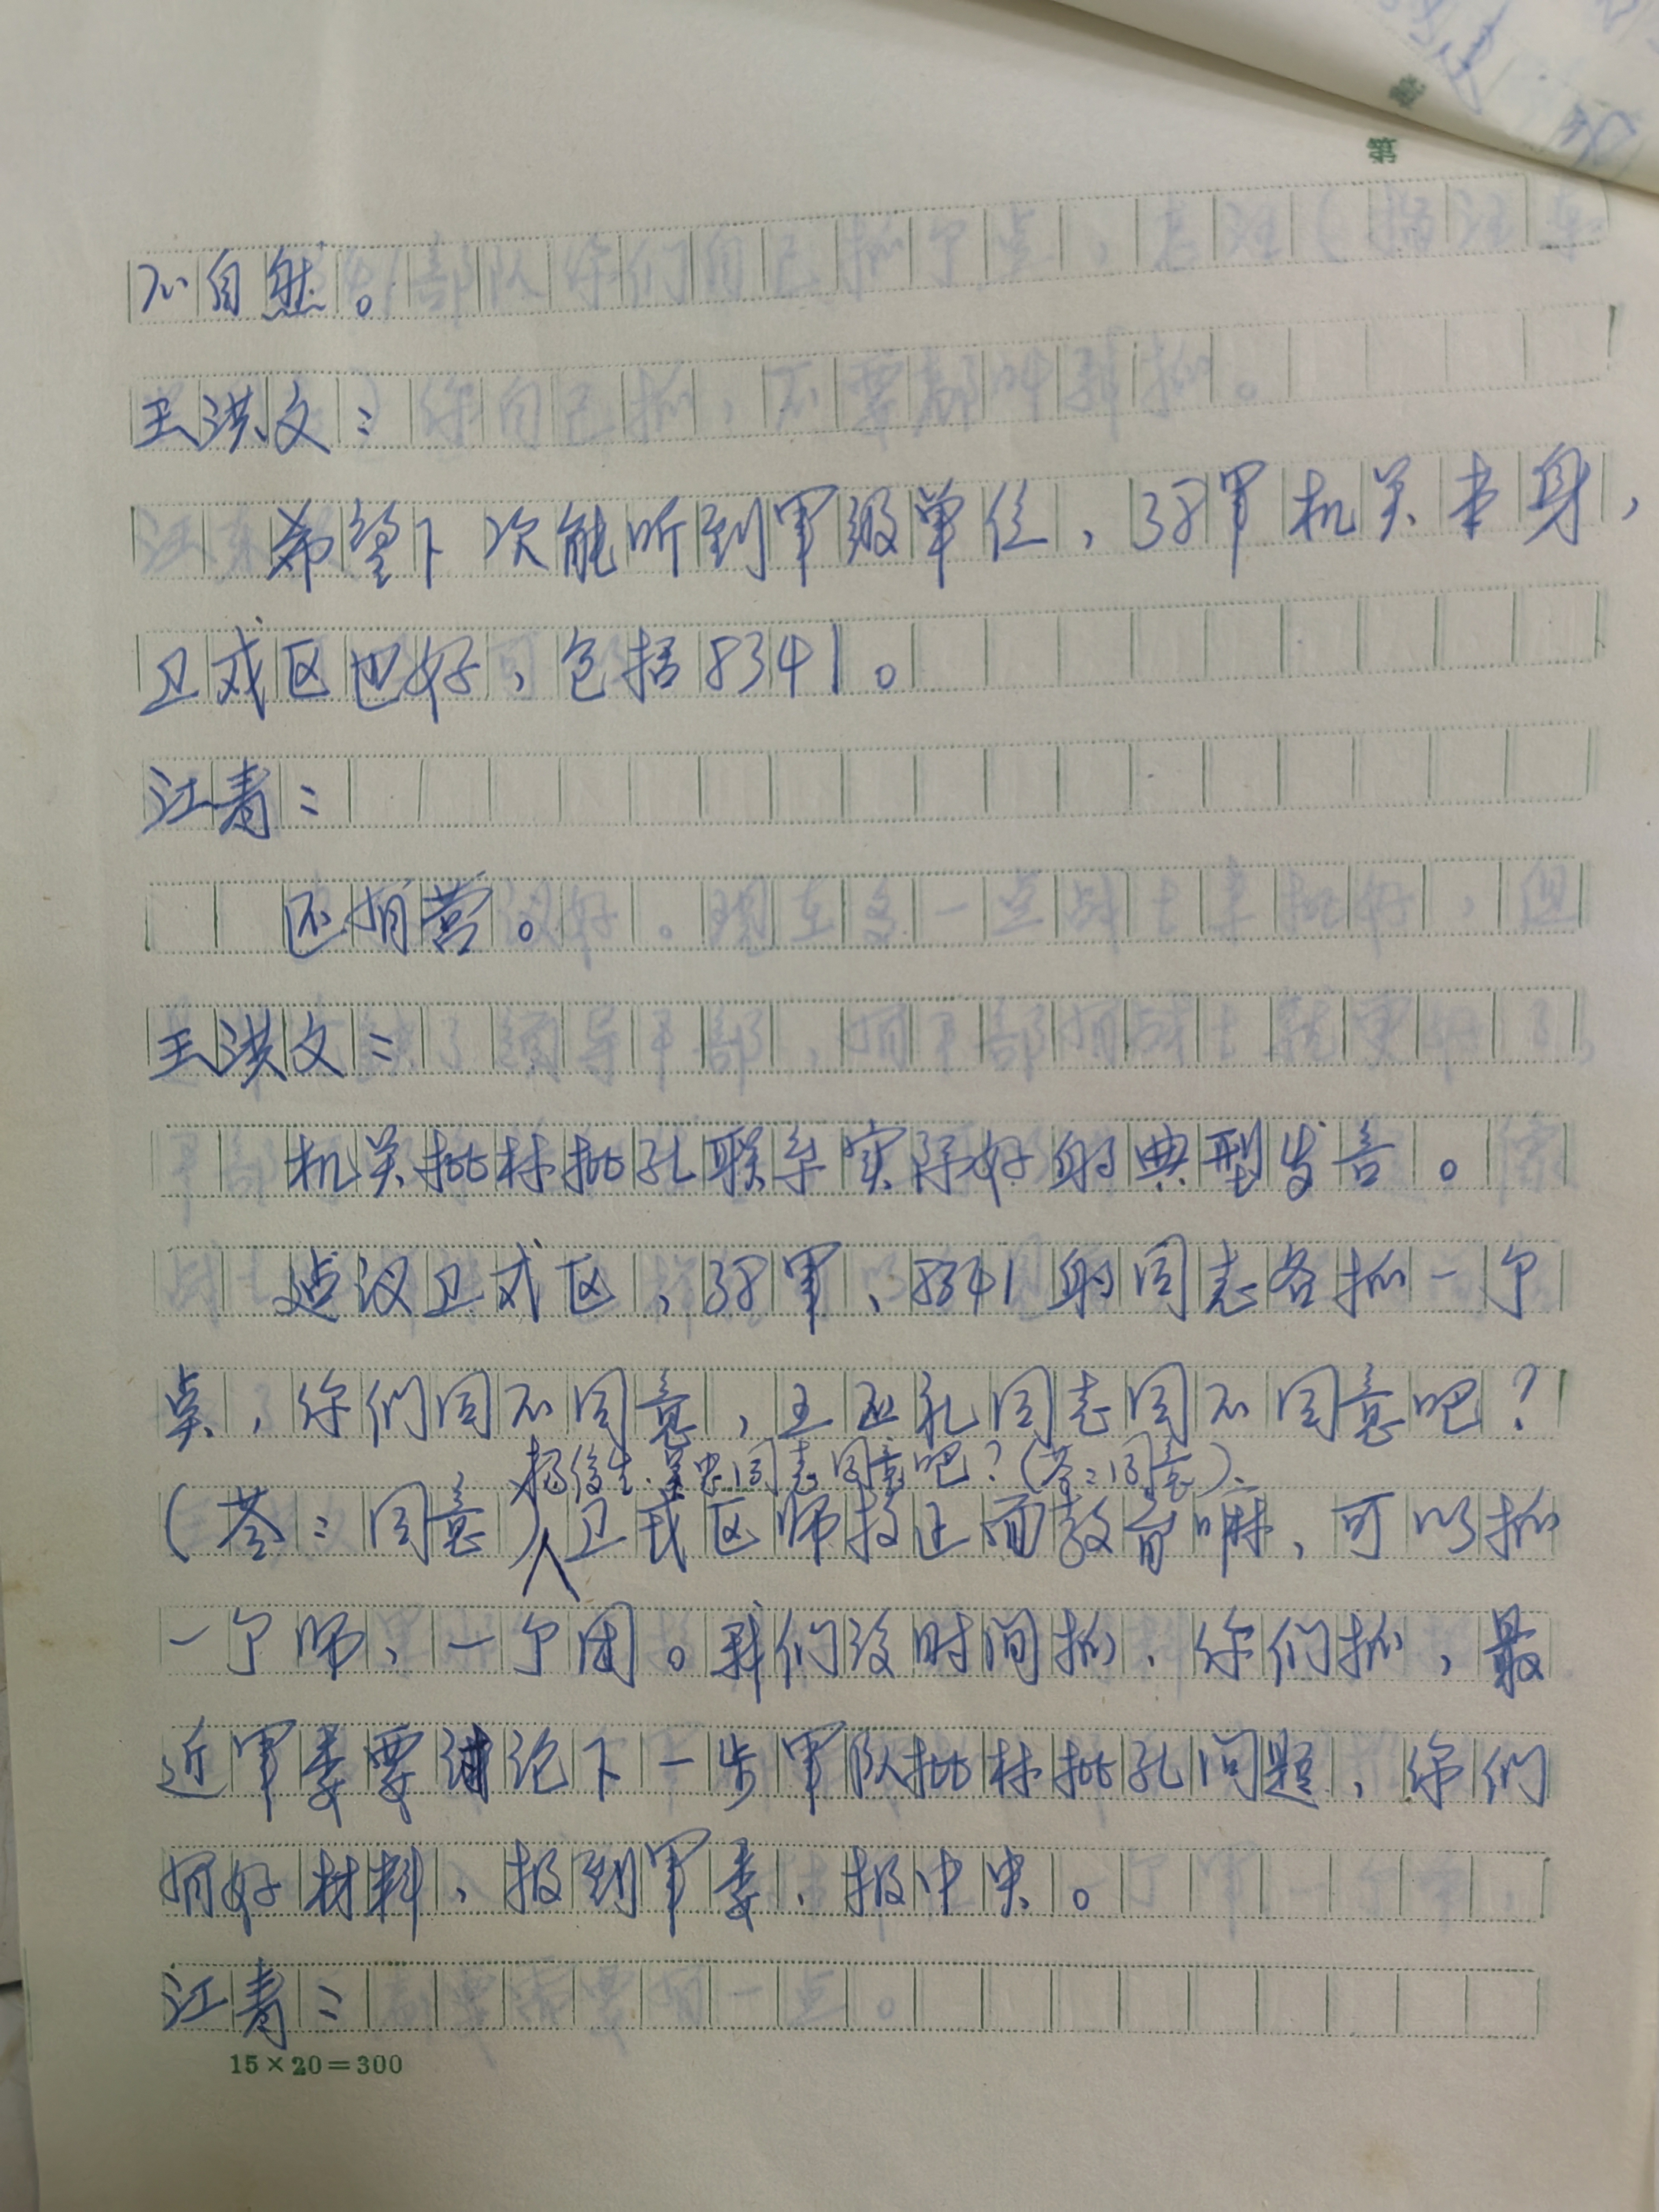 第
不自然。
王洪文：
希望下次能听到军级单位，38军机关本身，
卫戍区也好，包括8341。
江青：
还有营。
王洪文：
机关批林批孔联系实际好的典型发言。
建议卫戍区，38军、8341的同志各抓一个
点，你们同不同意，同志同不同意吧？
杨俊生、吴忠同志同意吧？（答：同意）、
（答：同意）卫戍区师按正面教育嘛，可以抓
一个师、一个团。我们没时间抓、你们抓，最
近军委要讨论下一步军队批林批孔问题，你们
有好材料、报到军委、报中央。
江青：
15×20=300